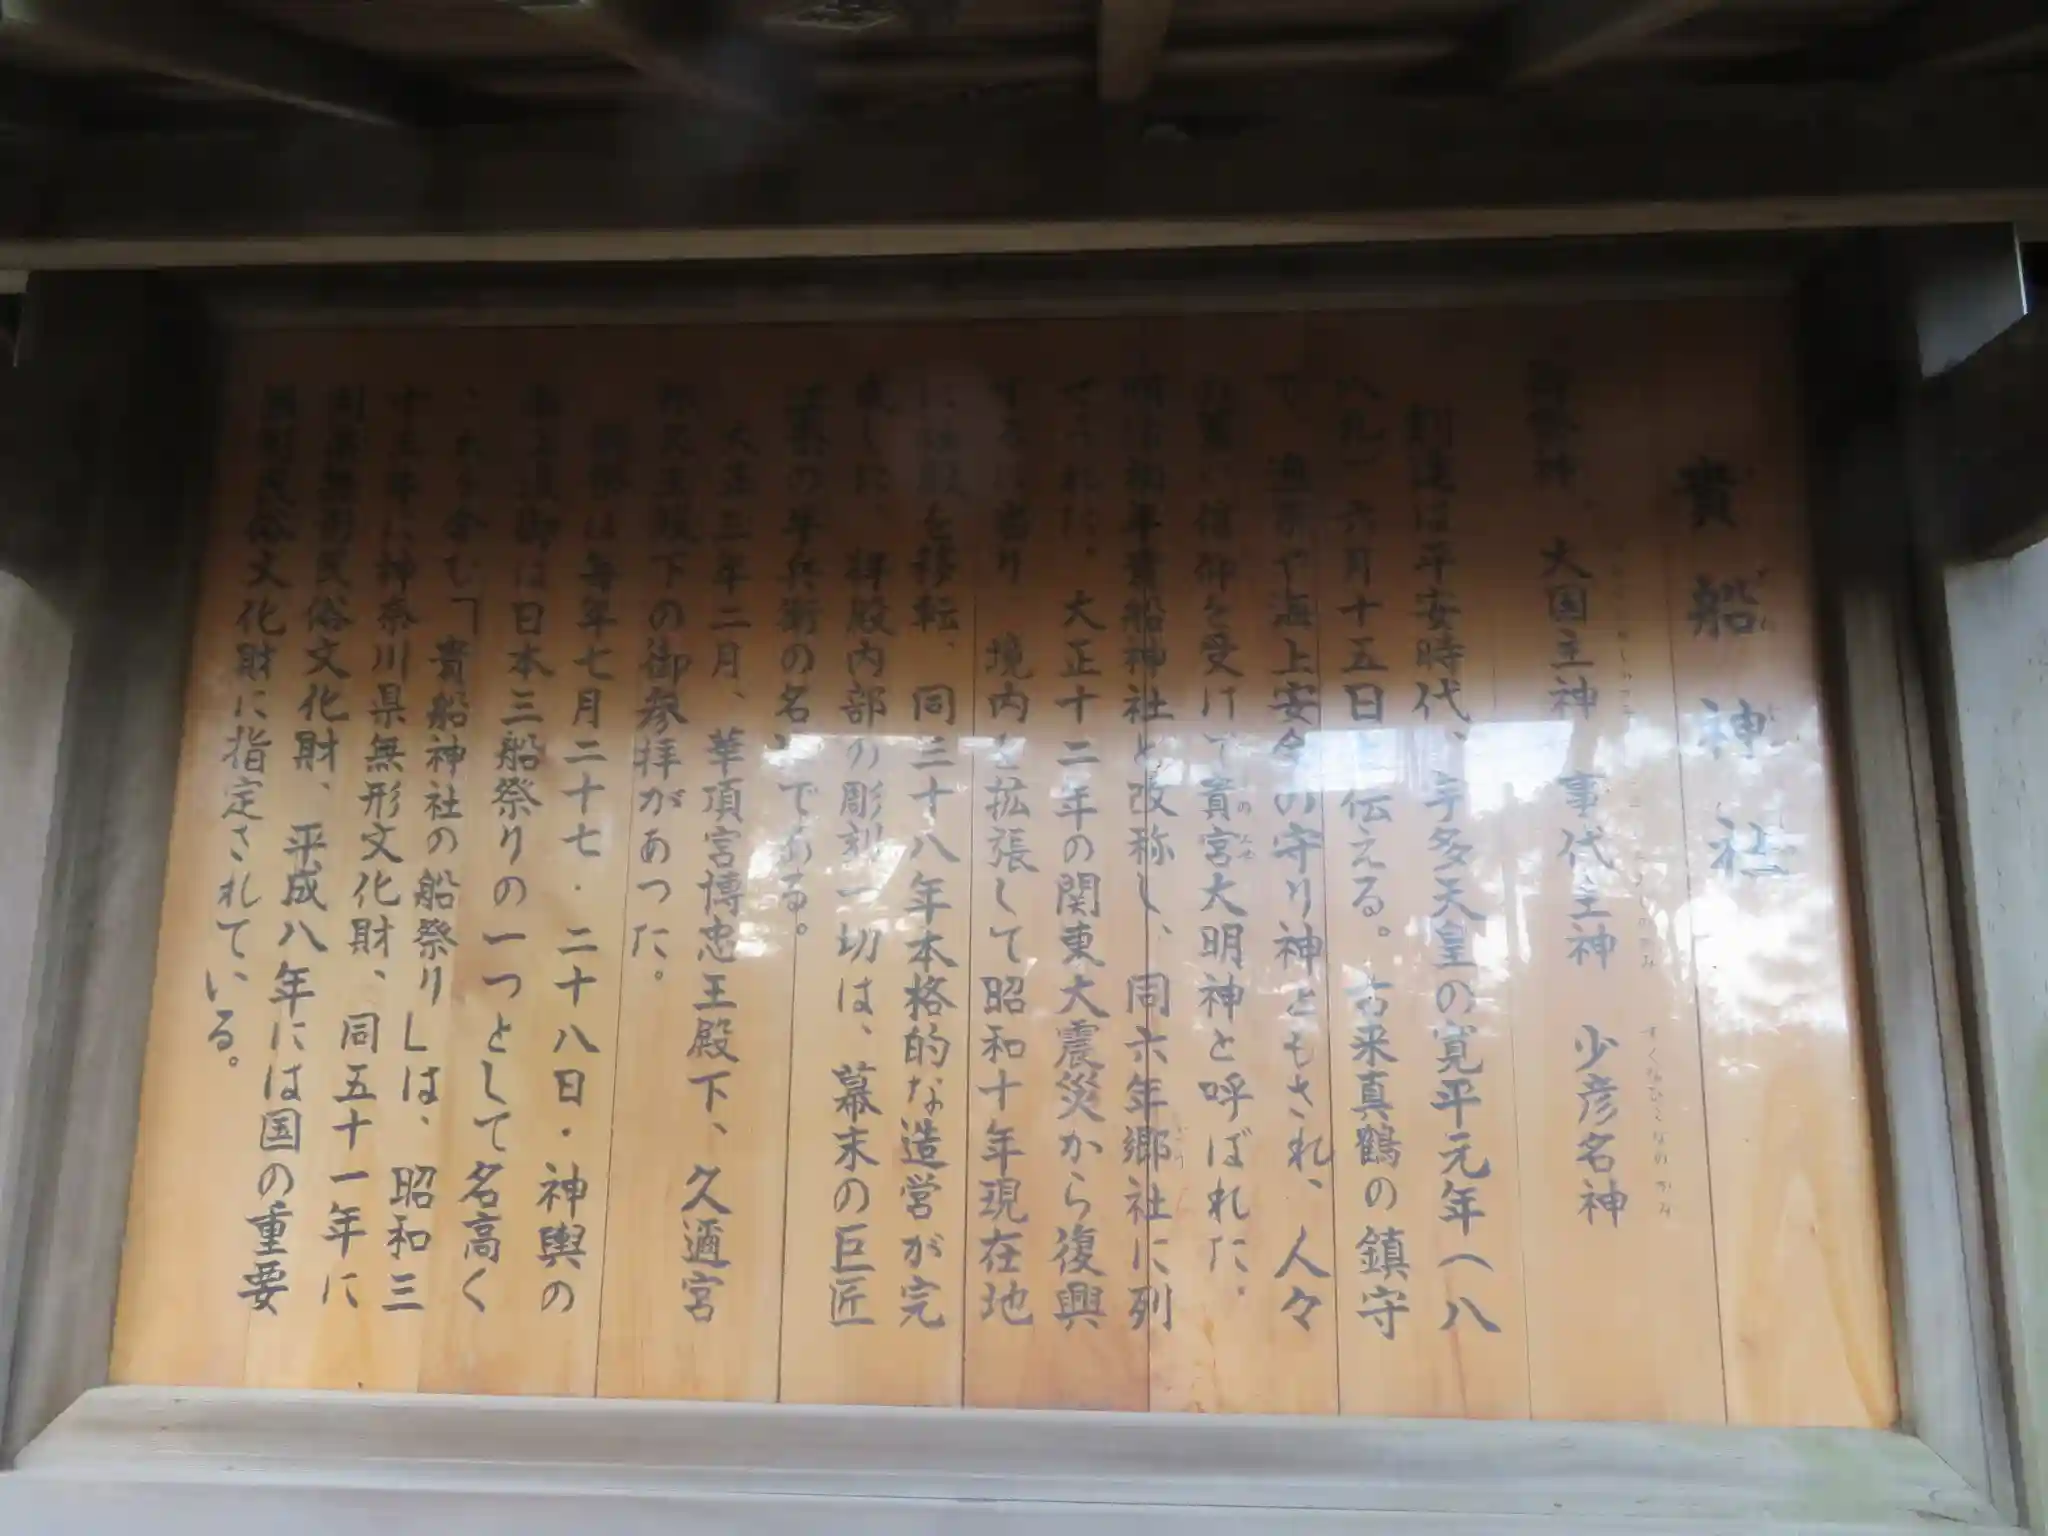 貴船神社
御祭神、大国主神 事代主神 少彦名神
創建は平安時代、宇多天皇の寛平元年(八
八九)六月十五日と伝える。古来真鶴の鎮守
で、漁業や海上安全の守り神ともされ、人々
の篤い信仰を受けて貴宮大明神と呼ばれた。
明治初年貴船神社と改称し、同六年郷社に列
せられた。大正十二年の関東大震災から復興
するに当り 境内を拡張して昭和十年現在地
に社殿を移転、同三十八年本格的な造営が完
成した。拝殿内部の彫刻一切は、幕末の巨匠
の半兵衛の名工である。
大正三年二月、華頂宮博忠王殿下、久邇宮
王殿下の御参拝があった。
例祭は毎年七月二十七・二十八日・神輿の
海上渡御は日本三船祭りの一つとして名高く
これを含む「貴船神社の船祭り」は、昭和三
十三年に神奈川県無形文化財、同五十一年に
同県無形民俗文化財、平成八年には国の重要
無形民俗文化財に指定されている。